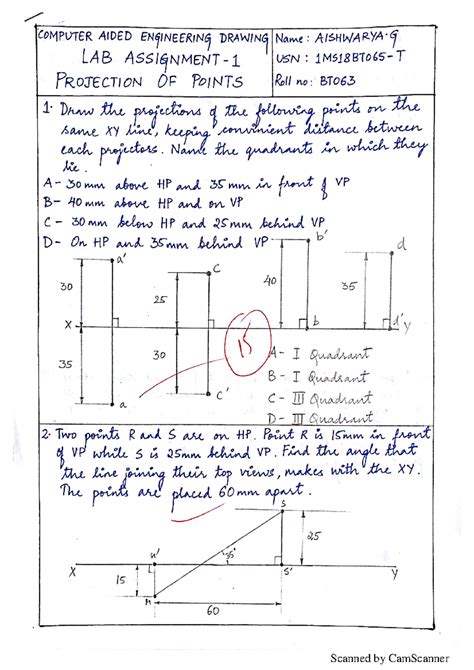 COMPUTER AIDED ENGINEERING DRAWING
LAB ASSIGNMENT-1
PROJECTION OF POINTS
Name: AISHWARYA.G
USN: 1MS18BT065-T
Roll no: BT063
1. Draw the projections of the following points on the
same XY line, keeping convinient distance between
each projectors. Name the quadrants in which they
lie.
A- 30mm above HP and 35mm in front of VP
B- 40mm above HP and on VP
C- 30mm below HP and 25mm behind VP
D- On HP and 35mm behind VP
a'
c
b'
d
30
25
40
35
X
b
d'
y
35
30
15
a
c'
A- I Quadrant
B- I Quadrant
C- III Quadrant
D- III Quadrant
2. Two points R and S are on HP. Point R is 15mm in front
of VP while S is 25mm behind VP. Find the angle that
the line joining their top views, makes with the XY.
The points are placed 60mm apart.
S
25
X
S'
Y
15
60
Scanned by CamScanner